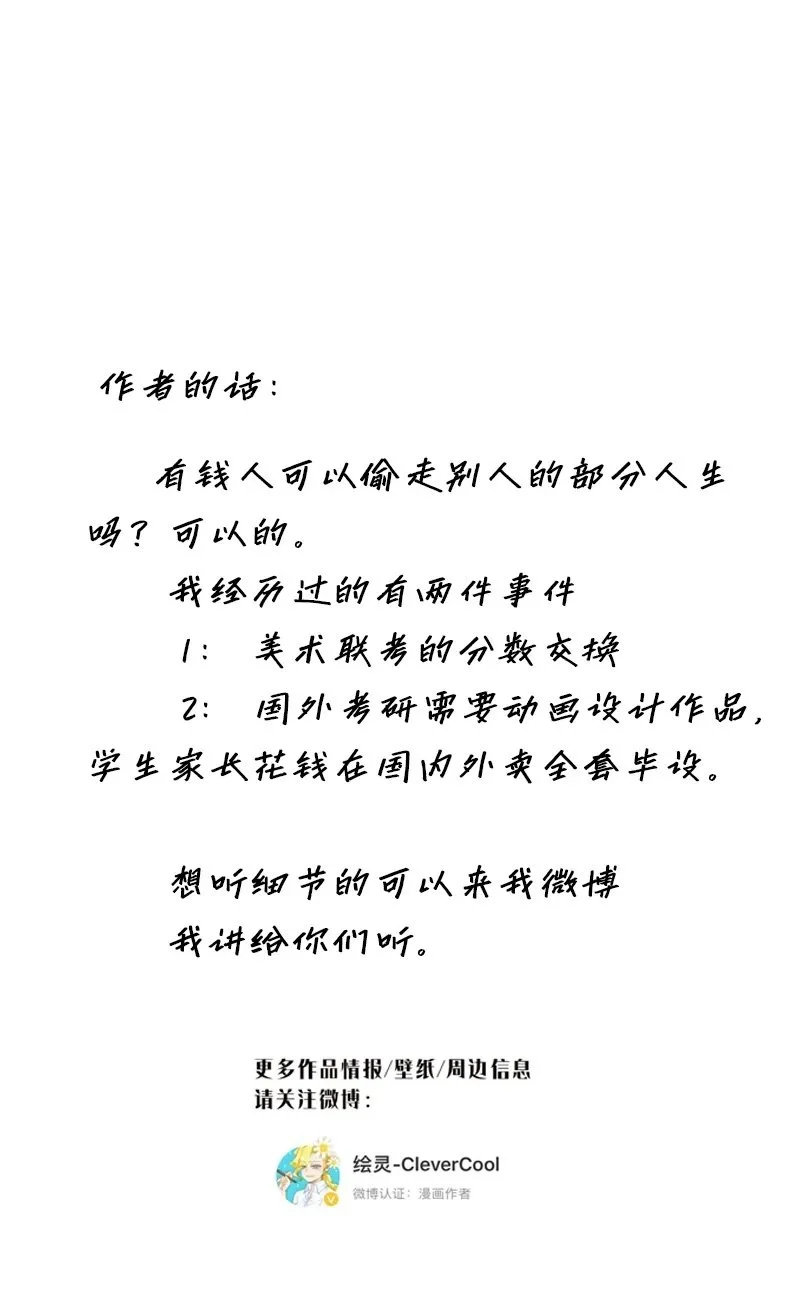 作者的话：
有钱人可以偷走别人的部分人生
吗？可以的。
我经历过的有两件事件
1： 美术联考的分数交换
2： 国外考研需要动画设计作品，
学生家长花钱在国内外卖全套毕设。
想听细节的可以来我微博
我讲给你们听。
更多作品情报/壁纸/周边信息
请关注微博：
绘灵-CleverCool
微博认证：漫画作者